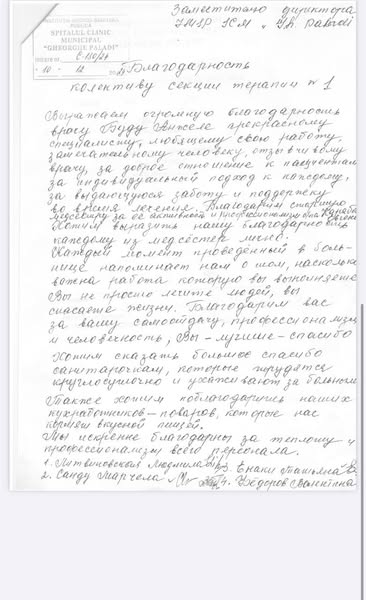 Заместителю директора
IMSP SCM "Gh. Paladi"
INSTITUȚIA MEDICO-SANITARĂ
PUBLICĂ
SPITALUL CLINIC
MUNICIPAL
"GHEORGHE PALADI"
10 12
Благодарность
колективу секции терапии № 1
Выражаем огромную благодарность
врачу Буду Анжеле прекрасному
специалисту, любящему свою работу,
замечательному человеку, отзывчивому
врачу, за доброе отношение к пациентам
за индивидуальный подход к каждому,
за выдающуюся заботу и поддержку
во время лечения. Благодарим старшую
медсестру за её активность и профессионализм
Хотим выразить нашу благодарность
каждому из медсестер лично.
Каждый момент проведенный в боль-
нице напоминает нам о том, насколько
важна работа которую вы выполняете
Вы не просто лечите людей, вы
спасаете жизни. Благодарим вас
за вашу самоотдачу, профессионализм
и человечность, Вы - лучшие - спасибо
Хотим сказать большое спасибо
санитарочкам, которые трудятся
круглосуточно и ухаживают за больными
Также хотим поблагодарить наших
кухработников - поваров, которые нас
кормят вкусной пищей.
Мы искренне благодарны за теплоту и
профессионализм всего персонала.
1. Литвиновская Людмила 3. Енаки Татьяна
2. Санду Марчела 4. Федоров Валентина